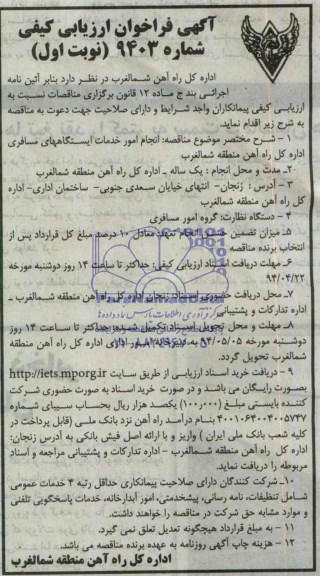 آگهی فراخوان ارزیابی کیفی
شماره ۹۴۰۳ (نوبت اول)
اداره کل راه آهن شمالغرب در نظر دارد بنابر آئین نامه
اجرائی بند ج ماده ۱۲ قانون برگزاری مناقصات نسبت به
ارزیابی کیفی پیمانکاران واجد شرایط و دارای صلاحیت جهت دعوت به مناقصه
به شرح زیر اقدام نماید.
۱- شرح مختصر موضوع مناقصه: انجام امور خدمات ایستگاههای مسافری
اداره کل راه آهن منطقه شمالغرب
۲-مدت و محل انجام : یک ساله ـ اداره کل راه آهن منطقه شمالغرب
۳ - آدرس : زنجان- انتهای خیابان سعدی جنوبی- ساختمان اداری- اداره
کل راه آهن منطقه شمالغرب
۴ - دستگاه نظارت: گروه امور مسافری
۵- میزان تضمین حسن انجام تعهد معادل ۱۰ درصد مبلغ کل قرارداد پس از
انتخاب برنده مناقصه
۶- مهلت دریافت اسناد ارزیابی کیفی: حداکثر تا ساعت ۱۴ روز دوشنبه مورخه
۹۴/۰۴/۲۲
۷- محل دریافت حضوری اسناد: زنجان اداره کل راه آهن منطقه شمالغرب ـ
اداره تدارکات و پشتیبانی
۸- مهلت و محل تحویل اسناد تکمیل شده: حداکثر تا ساعت ۱۴ روز
دوشنبه مورخه ۹۴/۰۵/۰۵ به دبیرخانه امور اداری اداره کل راه آهن منطقه
شمالغرب تحویل گردد.
۹ - دریافت خرید اسناد ارزیابی از طریق سایت http://iets.mporg.ir
بصورت رایگان می باشد و در صورت خرید اسناد به صورت حضوری شرکت
کننده بایستی مبلغ (۱۰۰٫۰۰۰) یکصد هزار ریال بحساب سیبای شماره
۴۰۰۱۰۶۴۰۰۴۰۰۵۷۴۷ بنام درآمد راه آهن نزد بانک ملی (قابل پرداخت در
کلیه شعب بانک ملی ایران ) واریز و با ارائه اصل فیش بانکی به آدرس زنجان:
اداره کل راه آهن منطقه شمالغرب - اداره تدارکات و پشتیبانی مراجعه و اسناد
مربوطه را دریافت نماید.
۱۰- شرکت کنندگان دارای صلاحیت پیمانکاری حداقل رتبه ۴ خدمات عمومی
شامل تنظیفات، نامه رسانی، پیشخدمتی، امور آبدارخانه، خدمات پاسخگویی تلفنی
و موارد مشابه حق شرکت در مناقصه را خواهند داشت.
۱۱ - به مبلغ قرارداد هیچگونه تعدیل تعلق نمی گیرد.
۱۲ - هزینه چاپ آگهی روزنامه به عهده برنده مناقصه می باشد.
اداره کل راه آهن منطقه شمالغرب